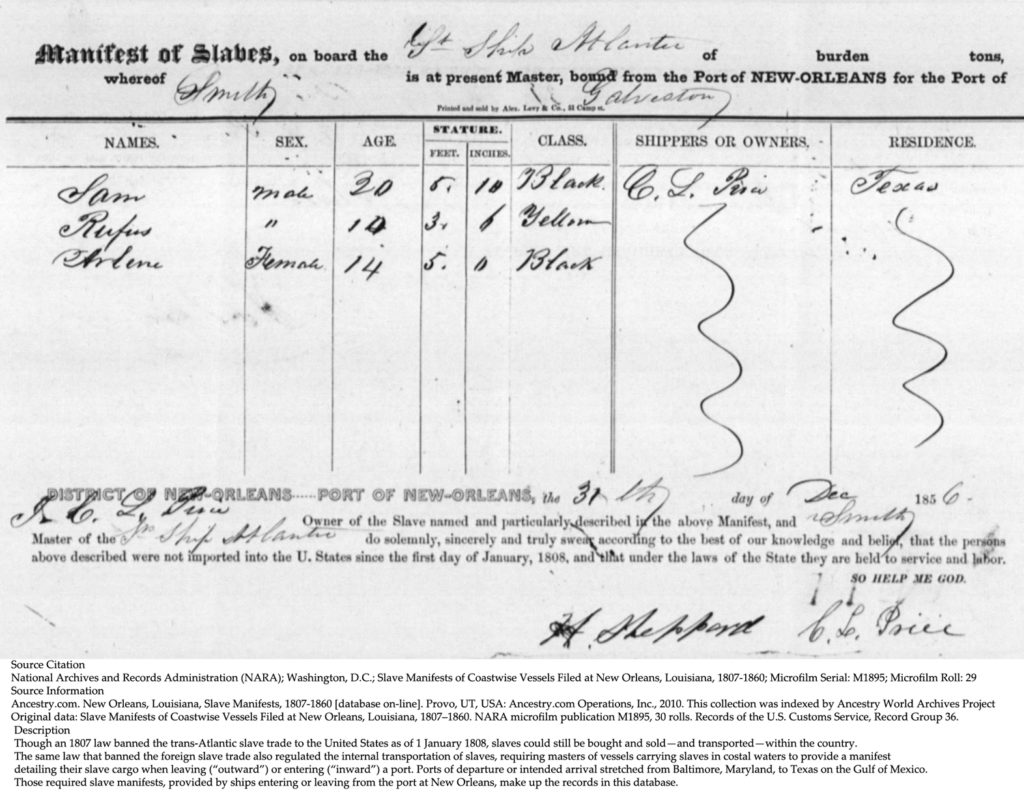 Manifest of Slaves, on board the St Ship Atlantic of burden tons,
whereof Smith is at present Master, bound from the Port of NEW-ORLEANS for the Port of
Galveston
Printed and sold by Alex. Levy & Co., 51 Camp st.
NAMES. SEX. AGE. STATURE. CLASS. SHIPPERS OR OWNERS. RESIDENCE.
FEET. INCHES.
Sam male 20 5. 10 Black. C. L. Price Texas
Rufus " 10 3. 6 Yellow
Arlene Female 14 5. 0 Black
DISTRICT OF NEW-ORLEANS.....PORT OF NEW-ORLEANS, the 31th day of Dec 1856.
I C. L. Price Owner of the Slave named and particularly described in the above Manifest, and Smith
Master of the St Ship Atlantic do solemnly, sincerely and truly swear according to the best of our knowledge and belief, that the persons
above described were not imported into the U. States since the first day of January, 1808, and that under the laws of the State they are held to service and labor.
SO HELP ME GOD.
H. Sheppard C. L. Price
Source Citation
National Archives and Records Administration (NARA); Washington, D.C.; Slave Manifests of Coastwise Vessels Filed at New Orleans, Louisiana, 1807-1860; Microfilm Serial: M1895; Microfilm Roll: 29
Source Information
Ancestry.com. New Orleans, Louisiana, Slave Manifests, 1807-1860 [database on-line]. Provo, UT, USA: Ancestry.com Operations, Inc., 2010. This collection was indexed by Ancestry World Archives Project
Original data: Slave Manifests of Coastwise Vessels Filed at New Orleans, Louisiana, 1807–1860. NARA microfilm publication M1895, 30 rolls. Records of the U.S. Customs Service, Record Group 36.
Description
Though an 1807 law banned the trans-Atlantic slave trade to the United States as of 1 January 1808, slaves could still be bought and sold—and transported—within the country.
The same law that banned the foreign slave trade also regulated the internal transportation of slaves, requiring masters of vessels carrying slaves in costal waters to provide a manifest
detailing their slave cargo when leaving ("outward") or entering ("inward") a port. Ports of departure or intended arrival stretched from Baltimore, Maryland, to Texas on the Gulf of Mexico.
Those required slave manifests, provided by ships entering or leaving from the port at New Orleans, make up the records in this database.